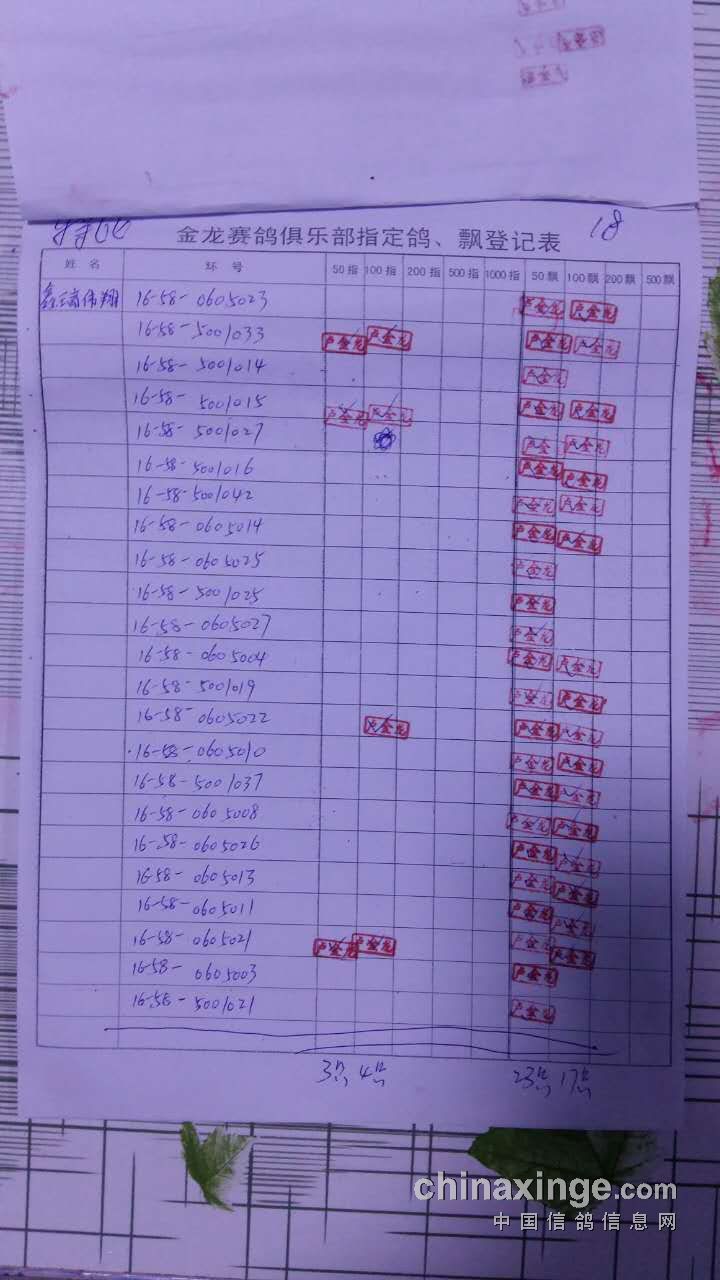 18
金龙赛鸽俱乐部指定鸽、飘登记表
姓 名 环 号 50指 100指 200指 500指 1000指 50飘 100飘 200飘 500飘
伟翔 16-58-0605023 卢金龙 卢金龙
16-58-5001033 卢金龙 卢金龙 卢金龙 卢金龙
16-58-5001014 卢金龙
16-58-5001015 卢金龙 卢金龙 卢金龙 卢金龙
16-58-5001027 卢金 卢金龙
16-58-5001016 卢金龙 卢金龙
16-58-5001042 卢金龙 卢金龙
16-58-0605014 卢金龙 卢金龙
16-58-0605025 卢金龙
16-58-5001025 卢金龙
16-58-0605027 卢金龙
16-58-0605004 卢金龙 卢金龙
16-58-5001019 卢金龙 卢金龙
16-58-0605022 卢金龙 卢金龙 卢金龙
16-58-0605010 卢金龙 卢金龙
16-58-5001037 卢金龙 卢金龙
16-58-0605008 卢金龙 卢金龙
16-58-0605026 卢金龙 卢金龙
16-58-0605013 卢金龙 卢金龙
16-58-0605011 卢金龙 卢金龙
16-58-0605021 卢金龙 卢金龙 卢金龙 卢金龙
16-58-0605003 卢金龙
16-58-5001021 卢金龙
3 4 23 17
chinaxinge.com
中国信鸽信息网